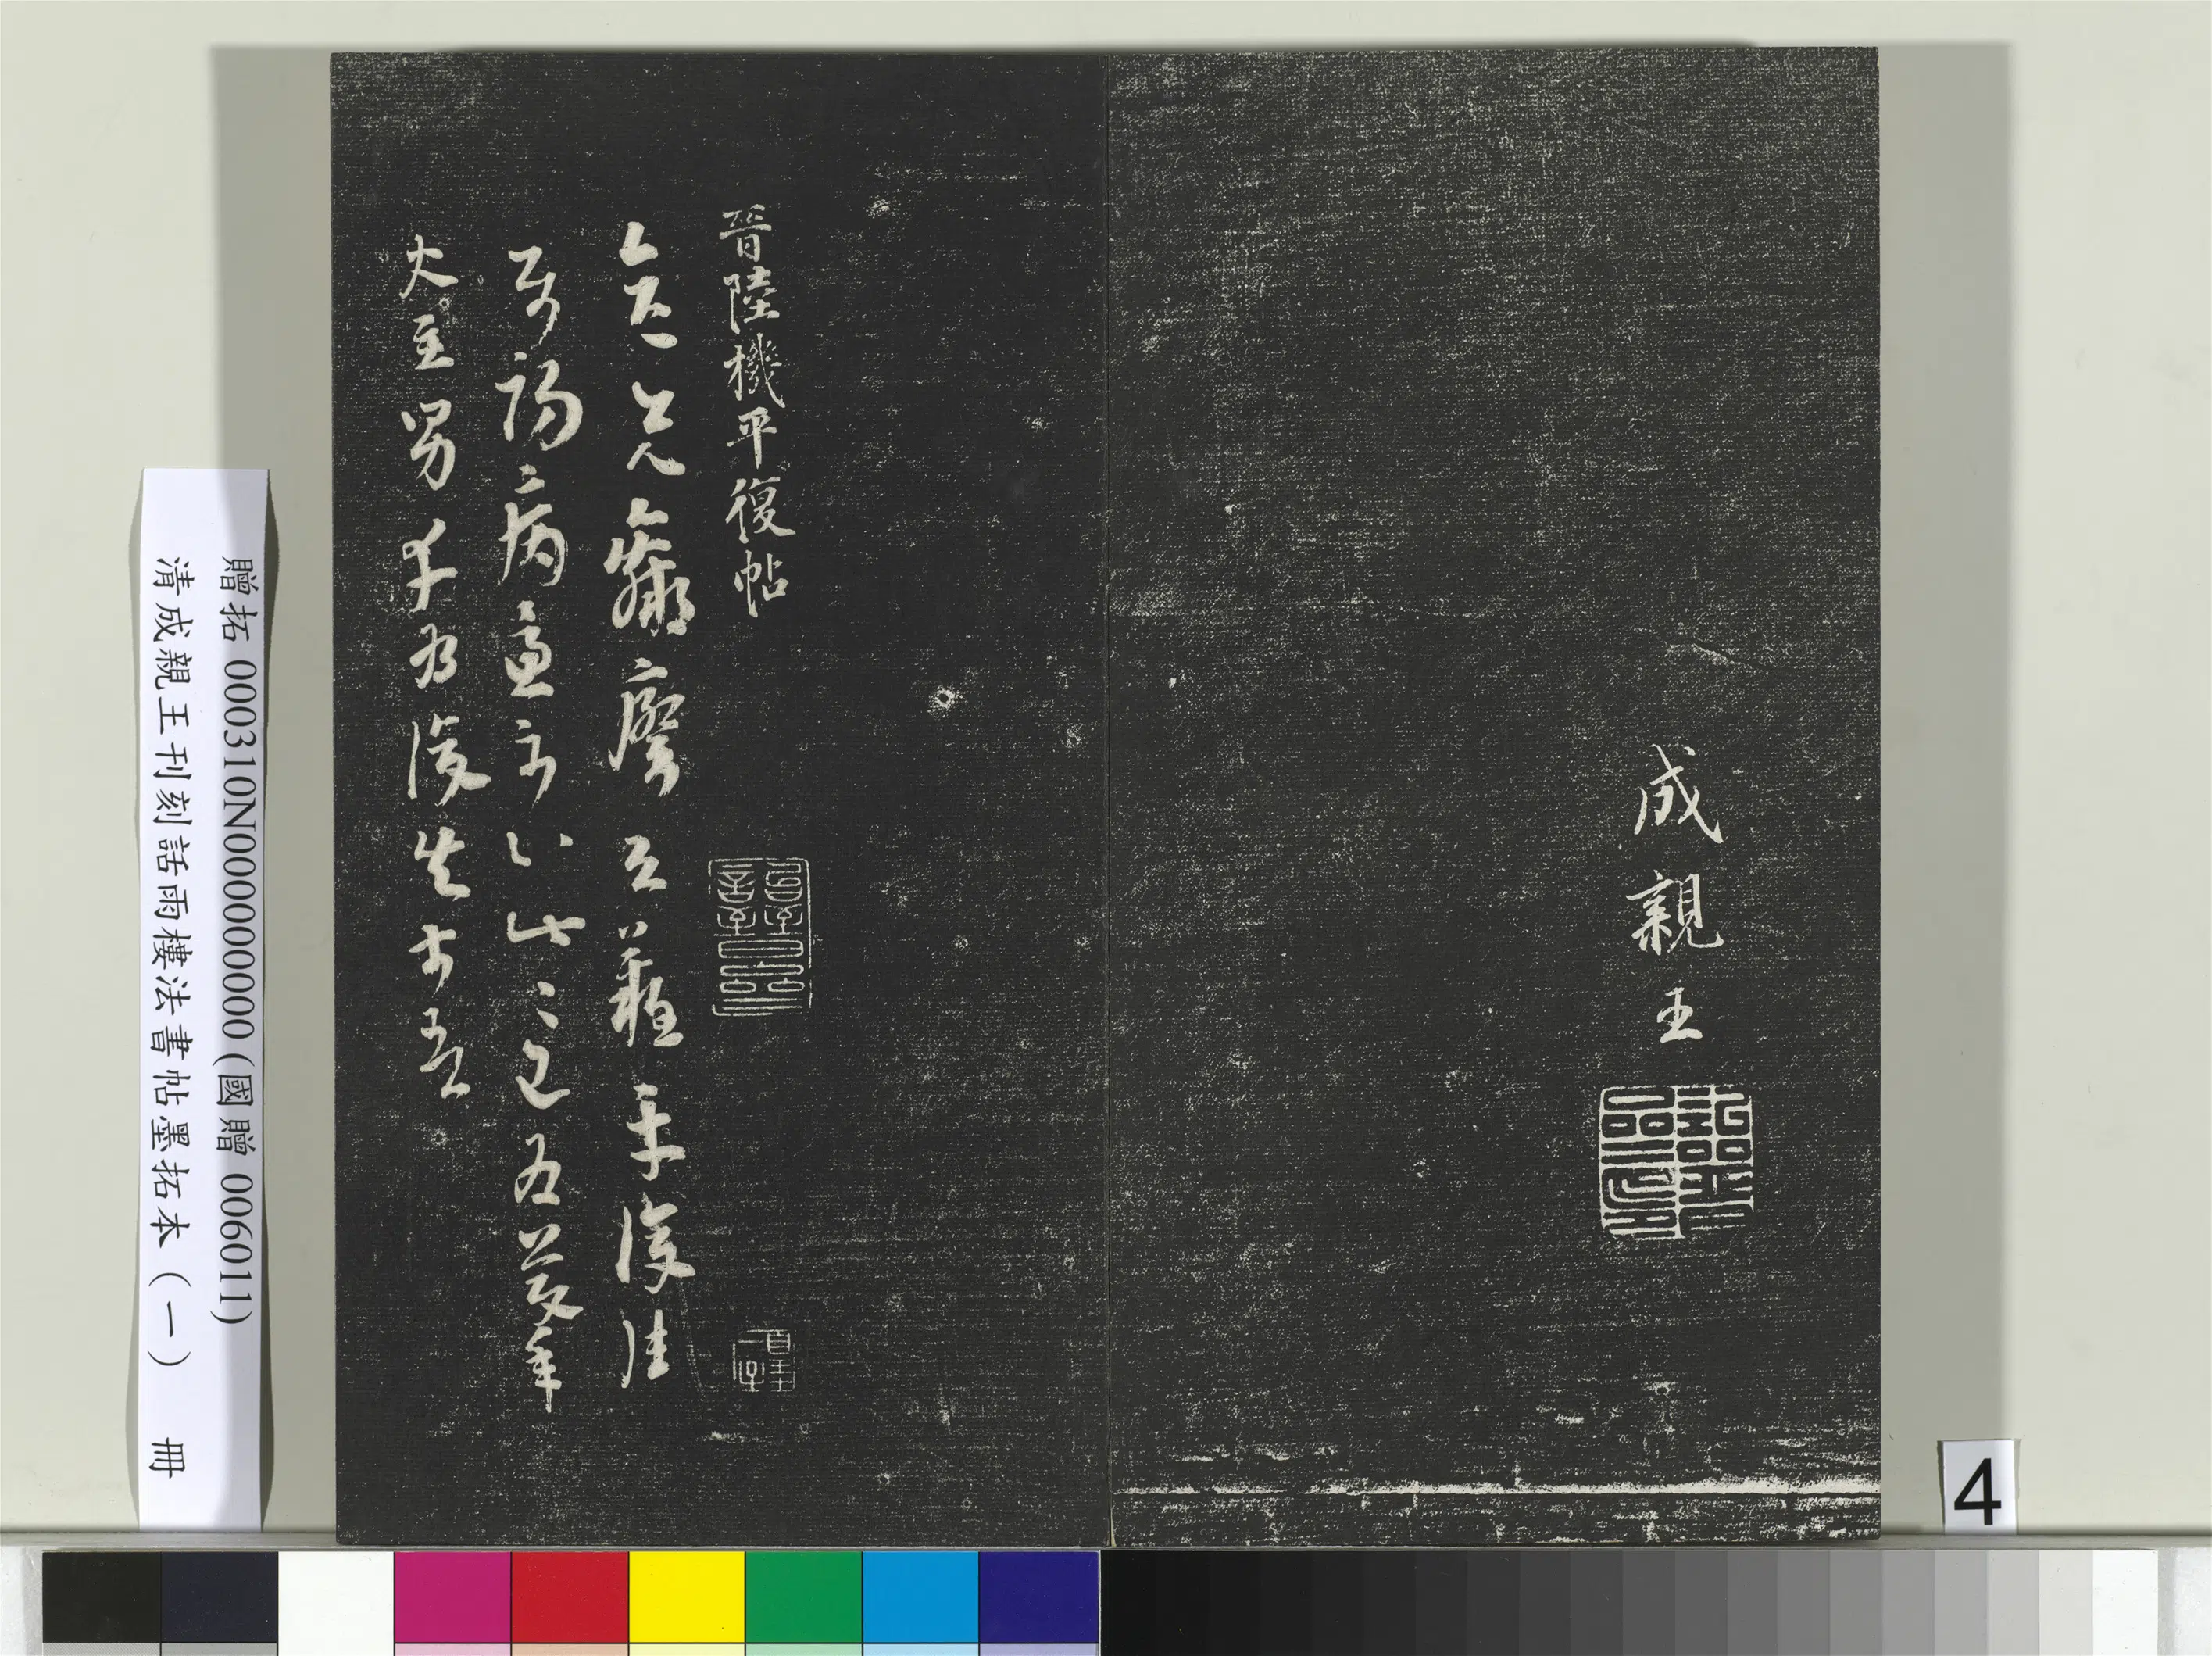 成親王
晉陸機平復帖
彥先羸瘵恐難平復往
屬初病慮不止此〻已為慶承
使唯男幸為復失前憂
贈拓 000310N000000000 (國贈 006011)
清成親王刊刻話雨樓法書帖墨拓本（一） 冊
4